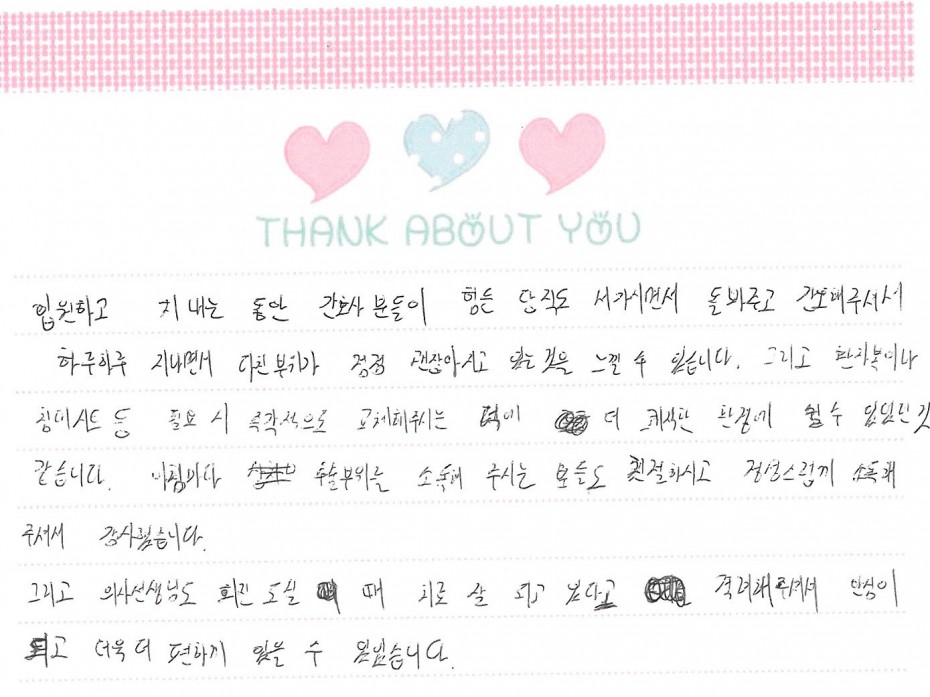 THANK ABOUT YOU
입원하고 지내는 동안 간호사분들이 힘든 당직도 서가시면서 돌봐주고 간호해주셔서
하루하루 지내면서 다친부위가 점점 괜찮아지고 있는것을 느낄 수 있습니다. 그리고 환자복이나
침대시트 등 필요 시 즉각적으로 교체해주시는 덕에 더 쾌적한 환경에 쉴 수 있었던 것
같습니다. 아침마다 수술부위를 소독해 주시는 분들도 친절하시고 정성스럽게 소독해
주셔서 감사했습니다.
그리고 의사선생님도 회진 도실 때 치료 잘 되고 있다고 격려해주셔서 안심이
되고 더욱 더 편하게 있을 수 있었습니다.